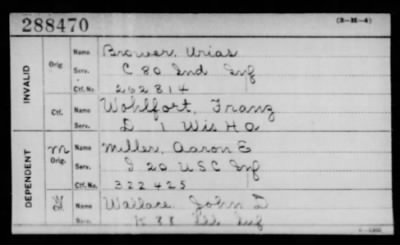 288470 (3-M-4)
INVALID
Orig. Name Brower, Urias
Serv. C 80 Ind Inf
Ctf. No. 262814
Ctf. Name Wohlfort, Franz
Serv. L 1 Wis H A
DEPENDENT
M Orig. Name Miller, Aaron E
Serv. I 20 U S C Inf
Ctf. No. 322425
W Ctf. Name Wallace John D
Serv. K 88 Ill Inf